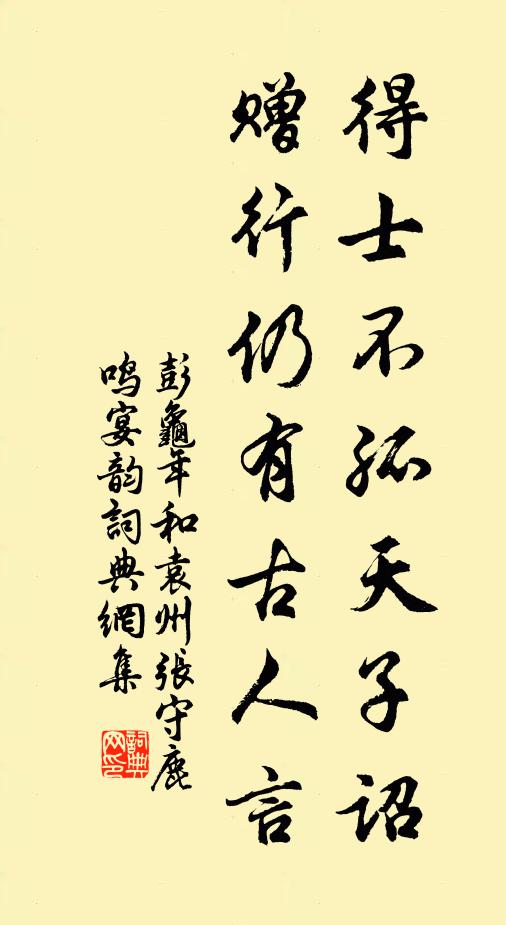 得士不孤天子詔
赠行仍有古人言
彭龜年和袁州張守鹿
鸣宴韵詞典網集
詞典
网印